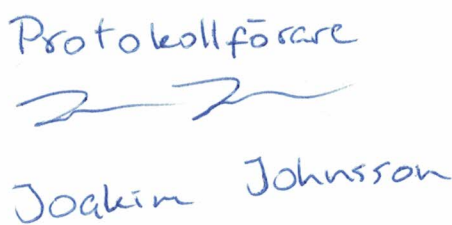 Protokollförare
Joakim Johnsson